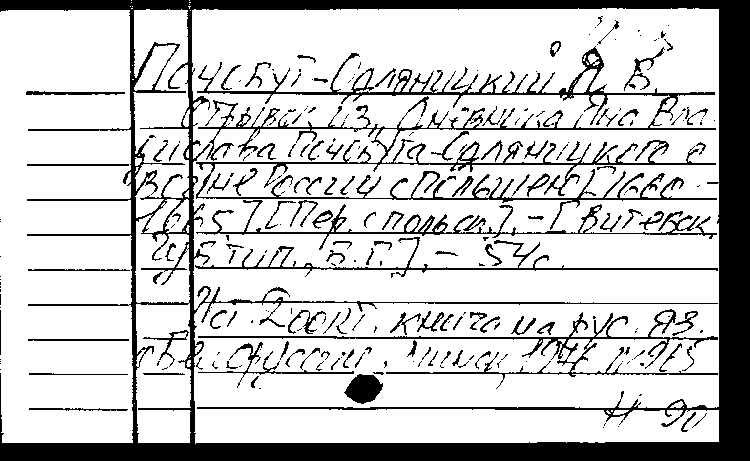 Почобут-Одляницкий Я. В.
Отрывок из „Дневника Яна Вла-
дислава Почобута-Одляницкого о
войне России с Польшей [1660 -
1665]. [Пер. с польск.]. - [Витебск:
Губ. тип., Б.Г.]. - 54 с.
Ист. 200 кт. книга на рус. яз.
о Белоруссии. Минск, 1976. №965
Н-90